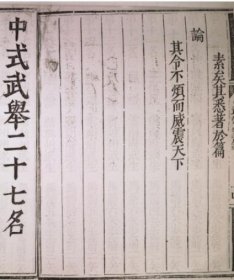 素矣其悉著於篇
論
其令不煩而威震天下
中式武舉二十七名